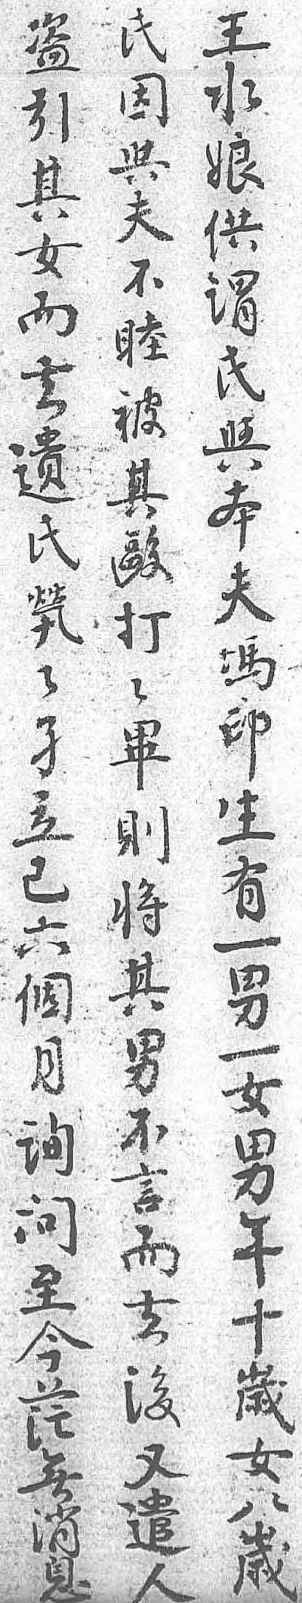 王水娘供謂氏與本夫馮卯生有一男一女男年十歲女八歲
氏因與夫不睦被其毆打〻畢則將其男不言而去後又遣人
盗引其女而去遺氏煢〻孑立已六個月詢問至今茫無消息